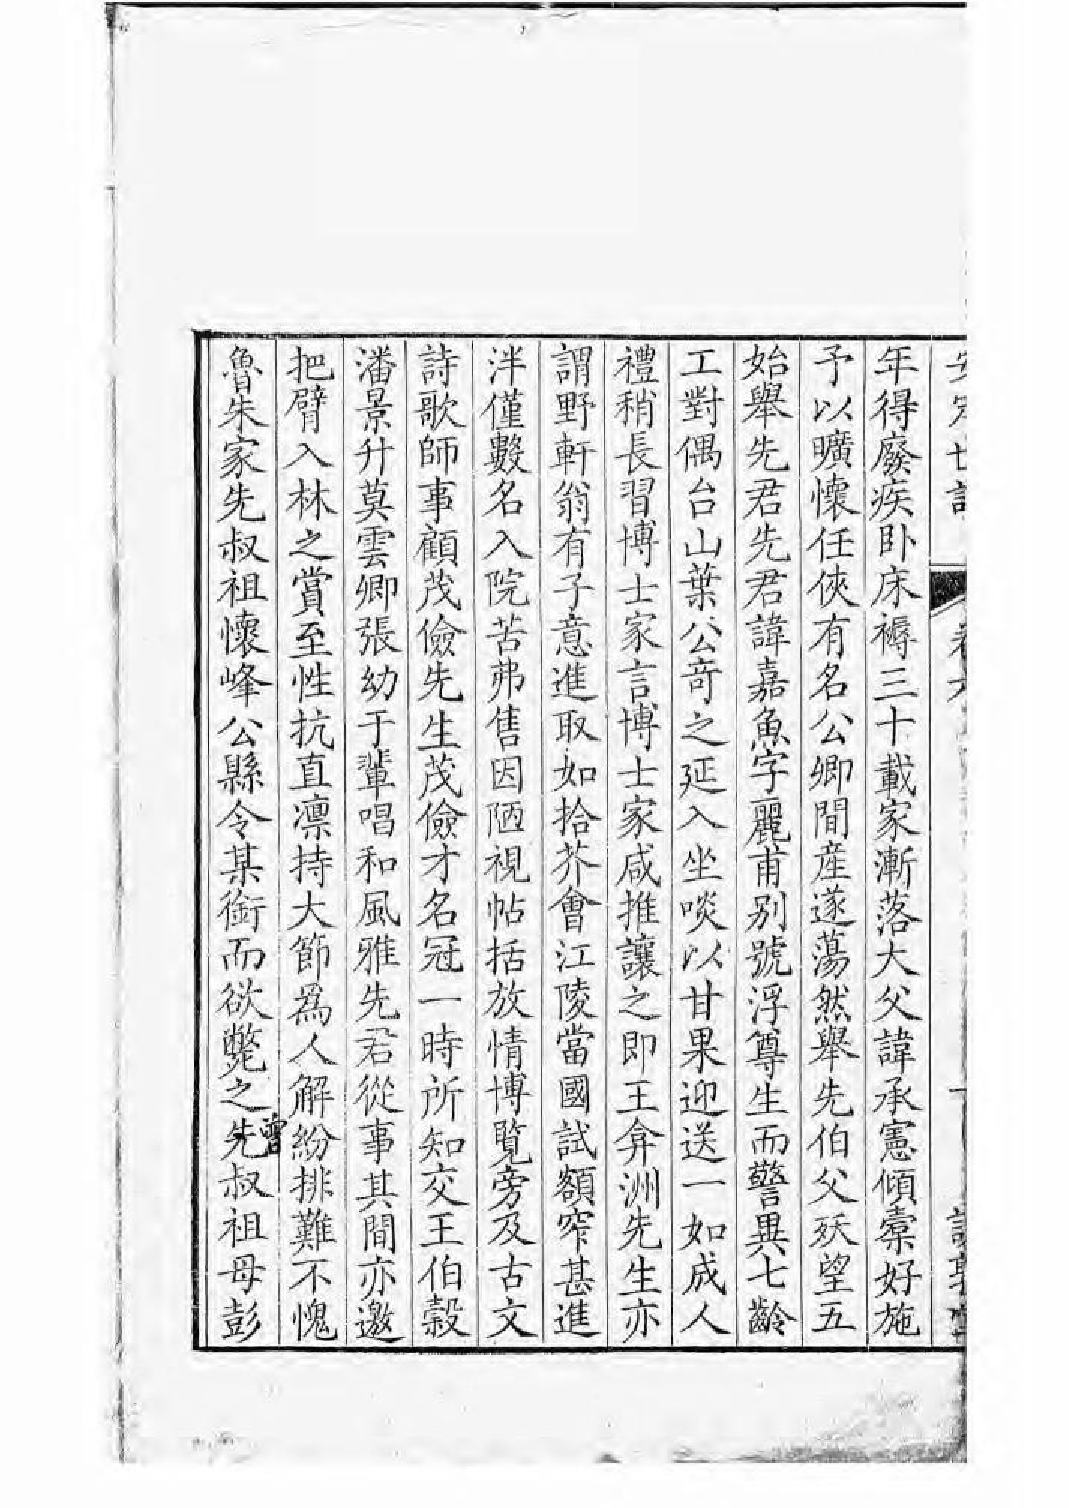 年得廢疾卧床褥三十載家漸落大父諱承憲傾橐好施
予以曠懷任俠有名公卿間産遂蕩然舉先伯父殀望五
始舉先君先君諱嘉魚字麗甫别號浮尊生而警異七齡
工對偶台山葉公奇之延入坐啖以甘果迎送一如成人
禮稍長習博士家言博士家咸推讓之即王弇洲先生亦
謂野軒翁有子意進取如拾芥會江陵當國試額窄甚進
泮僅數名入院苦弗售因陋視帖括放情博覽旁及古文
詩歌師事顧茂儉先生茂儉才名冠一時所知交王伯穀
潘景升莫雲卿張幼于輩唱和風雅先君從事其間亦邀
把臂入林之賞至性抗直凛持大節爲人解紛排難不愧
魯朱家先叔祖懷峰公縣令某銜而欲斃之先曾叔祖母彭